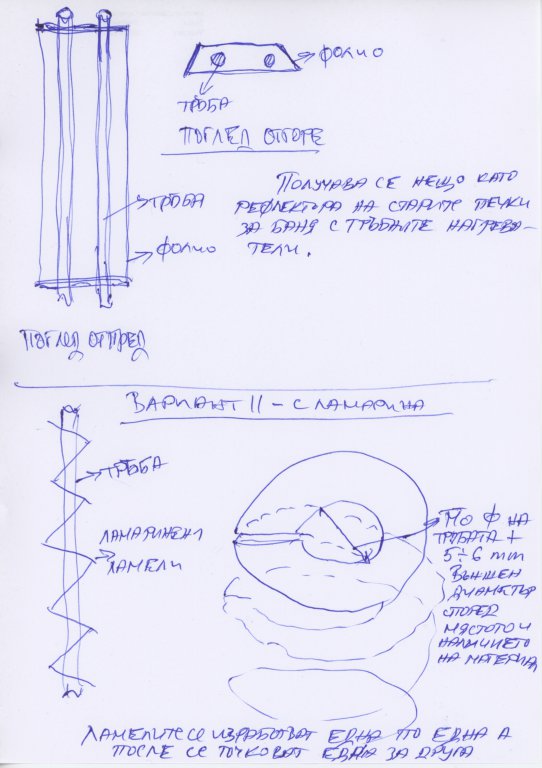 ФОЛИО
ТРЪБА
ПОГЛЕД ОТГОРЕ
ПОЛУЧАВА СЕ НЕЩО КАТО
РЕФЛЕКТОРА НА СТАРИТЕ ПЕЧКИ
ЗА БАНЯ С ТРЪБНИТЕ НАГРЕВА-
ТЕЛИ.
ТРЪБА
ФОЛИО
ПОГЛЕД ОТПРЕД
ВАРИАНТ II - С ЛАМАРИНА
ТРЪБА
ЛАМАРИНЕНИ
ЛАМЕЛИ
ПО Ф НА
ТРЪБАТА +
5÷6 mm
ВЪНШЕН
ДИАМЕТЪР
СПОРЕД
МЯСТОТО И
НАЛИЧИЕТО
НА МАТЕРИАЛ
ЛАМЕЛИТЕ СЕ ИЗРАБОТВАТ ЕДНА ПО ЕДНА А
ПОСЛЕ СЕ ТОЧКОВАТ ЕДНА ЗА ДРУГА